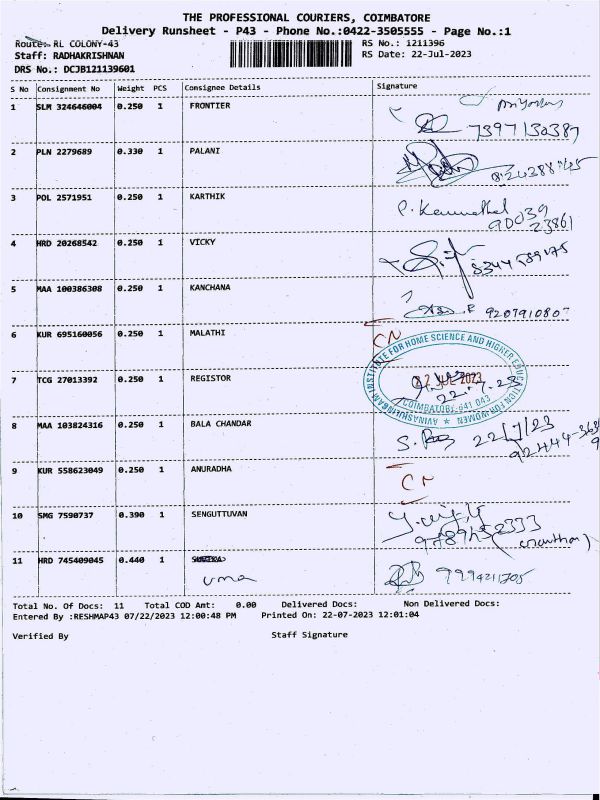 THE PROFESSIONAL COURIERS, COIMBATORE
Delivery Runsheet - P43 - Phone No.:0422-3505555 - Page No.:1
Route:- RL COLONY-43 RS No.: 1211396
Staff: RADHAKRISHNAN RS Date: 22-Jul-2023
DRS No.: DCJB121139601
S No Consignment No Weight PCS Consignee Details Signature
1 SLM 324646004 0.250 1 FRONTIER
7397130387
2 PLN 2279689 0.330 1 PALANI
3 POL 2571951 0.250 1 KARTHIK
90039
23861
4 HRD 20268542 0.250 1 VICKY
5 MAA 100386308 0.250 1 KANCHANA
9207910807
6 KUR 695160056 0.250 1 MALATHI CN
7 TCG 27013392 0.250 1 REGISTOR
AVINASHILINGAM INSTITUTE FOR HOME SCIENCE AND HIGHER EDUCATION FOR WOMEN
22 JUL 2023
22.7.23
COIMBATORE-641 043
8 MAA 103824316 0.250 1 BALA CHANDAR
22/7/23
9 KUR 558623049 0.250 1 ANURADHA CN
10 SMG 7590737 0.390 1 SENGUTTUVAN
11 HRD 745409045 0.440 1
uma 9994211705
Total No. Of Docs: 11 Total COD Amt: 0.00 Delivered Docs: Non Delivered Docs:
Entered By :RESHMAP43 07/22/2023 12:00:48 PM Printed On: 22-07-2023 12:01:04
Verified By Staff Signature